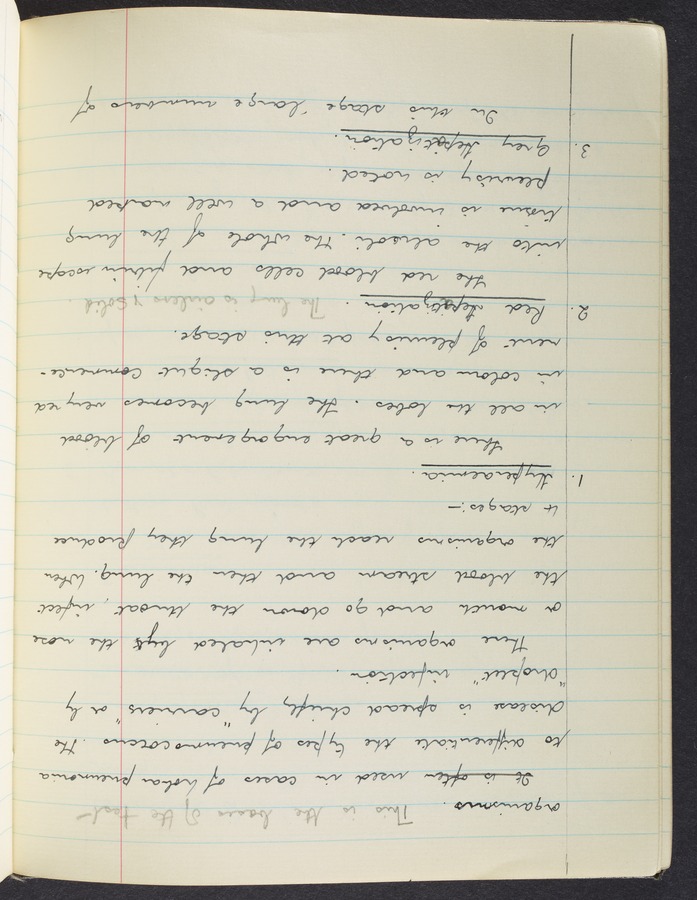 organisms. This is the bases of the test
It is often used in cases of lobar pneumonia
to differentiate the types of pneumococcus. The
disease is spread chiefly by "carriers" or by
"droplet" infection.
These organisms are inhaled by the nose
or mouth and go down the throat, infect
the blood stream and then the lung. When
the organisms reach the lung they produce
4 stages:-
1. Hyperaemia.
there is a great engorgement of blood
in all the lobes. The lung becomes very red
in colour and there is a slight commence-
ment of pleurisy at this stage.
2. Red Hepatization. The lung is airless & solid.
the red blood cells and fibrin escape
into the alveoli. The whole of the lung
tissue is involved and a well marked
pleurisy is noted.
3. Grey Hepatization.
In this stage large numbers of